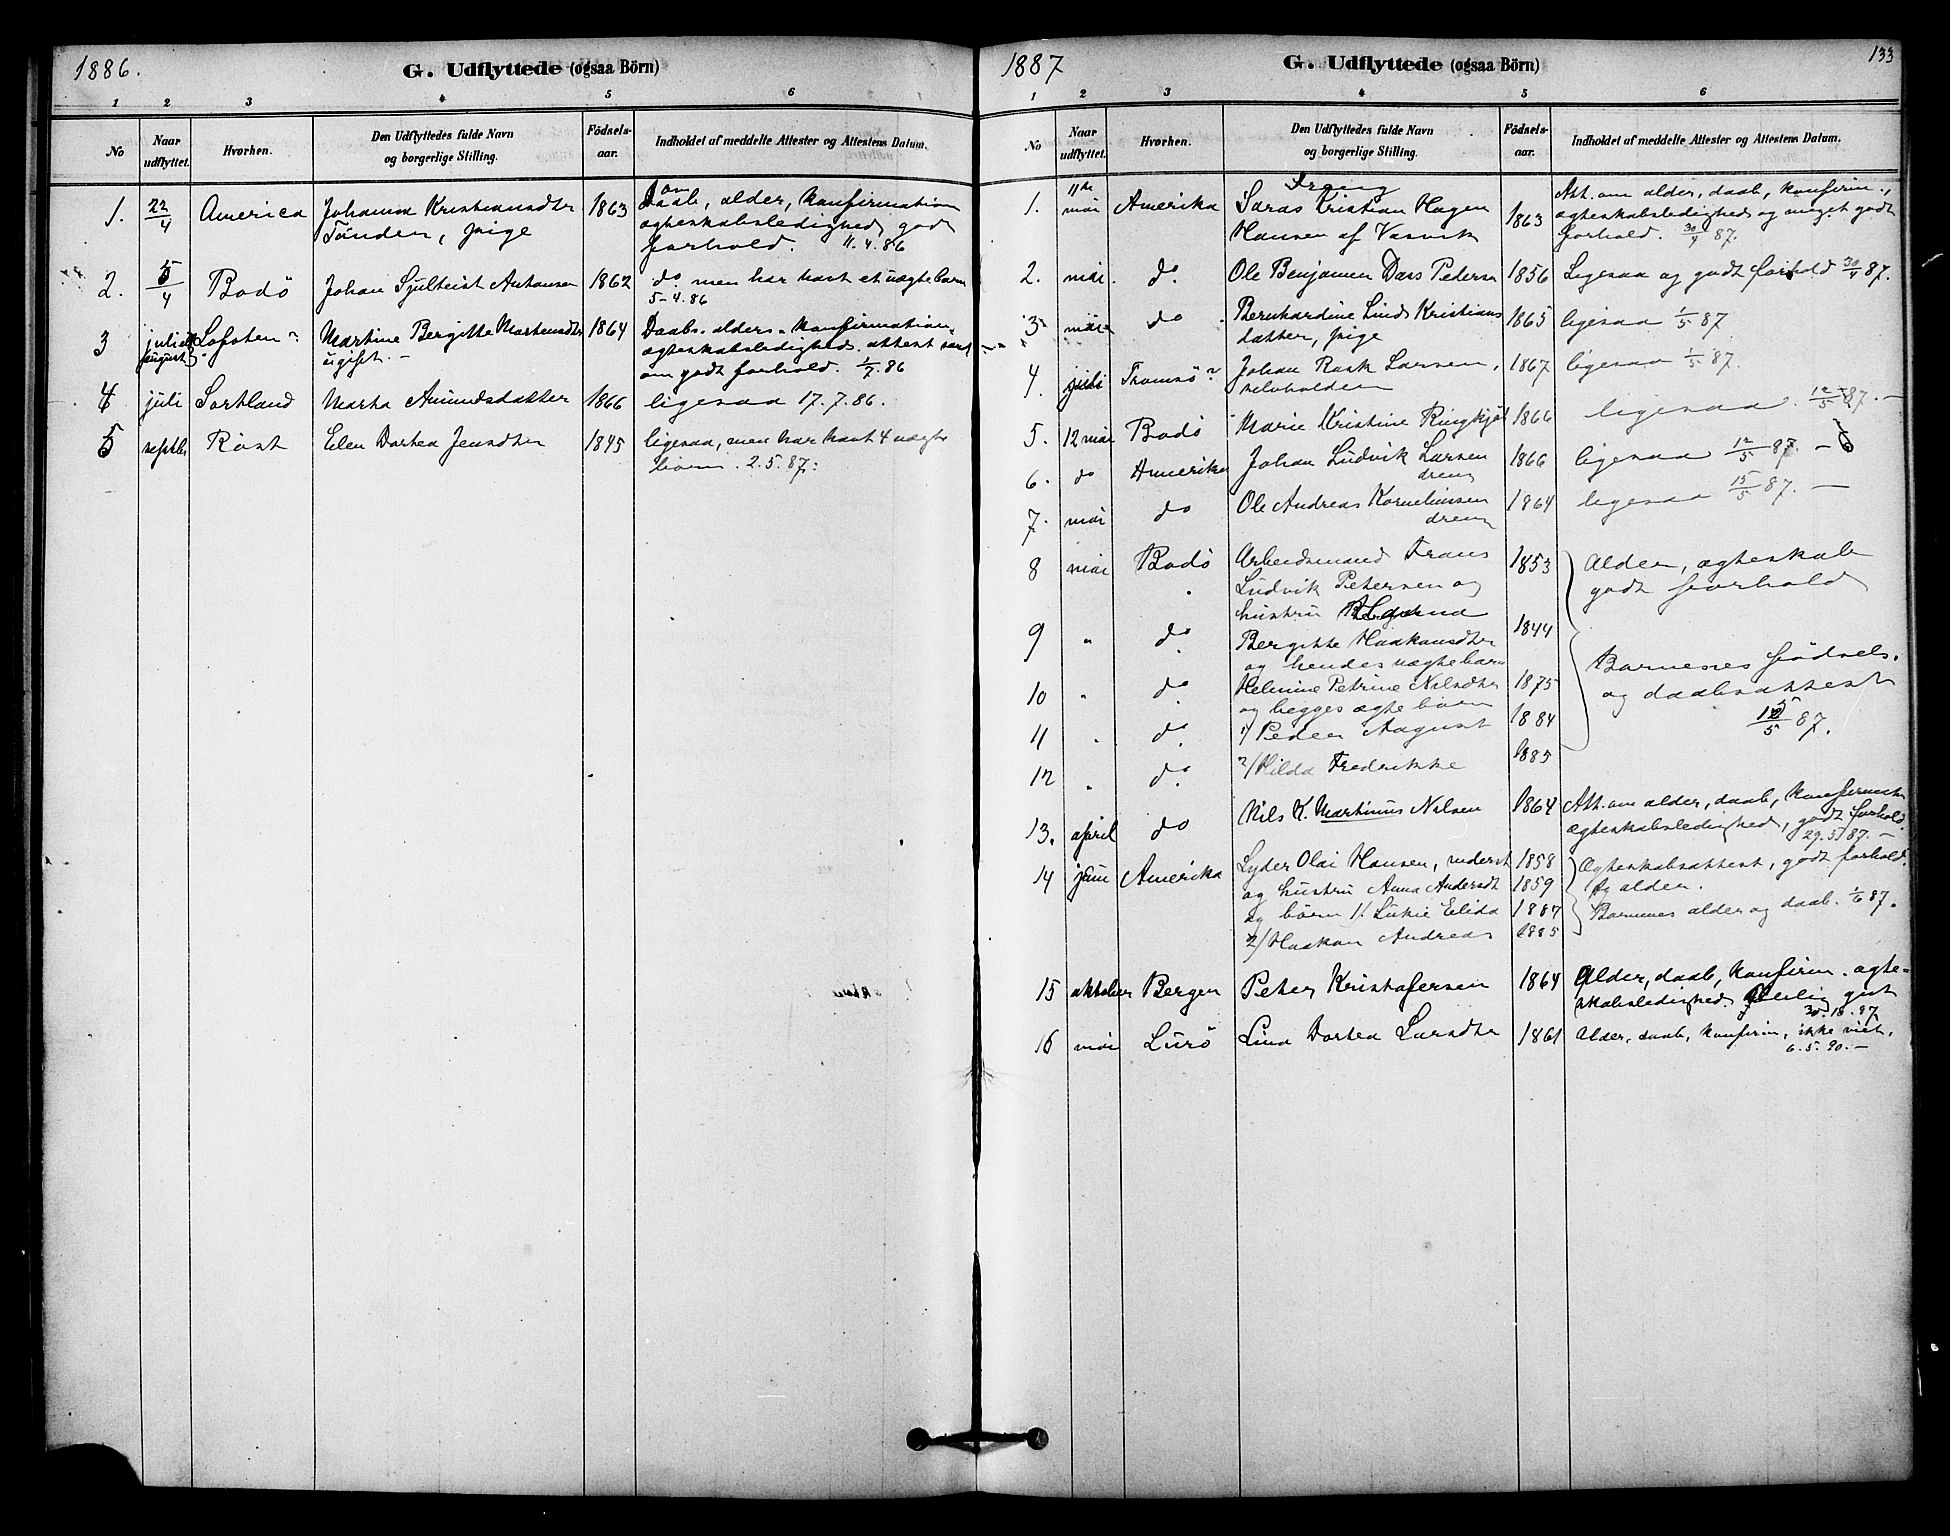 1886.
G. Udflyttede (ogsaa Börn)
1 2 3 4 5 6
No
Naar udflyttet.
Hvorhen.
Den Udflyttedes fulde Navn og borgerlige Stilling.
Födsels-aar.
Indholdet af meddelte Attester og Attestens Datum.
1. 22/4 America Johanna Kristiansdtr 1863 Daab, alder, konfirmation
om
Tönder, pige ægteskabsledighed, godt
forhold. 11.4.86
2. 5/4 Bodö Johan Antonsen 1862 do men har havt et uægte barn
5-4.86
3 juli Lofoten? Martine Bergitte Martensdtr 1864 Daabs. alders. konfirmation.
august ugift. - ægteskabsledigheds. attest samt
om godt forhold. 1/7.86
4 juli Sortland Marta Amundsdatter 1866 ligesaa 17.7.86.
5 septbr Röst Elen Dortea Jensdtr 1845 ligesaa, men har havt 4 uægte
börn. 2.5.87.
1887
G. Udflyttede (ogsaa Börn)
133
1 2 3 4 5 6
No
Naar udflyttet.
Hvorhen.
Den Udflyttedes fulde Navn og borgerlige Stilling.
Födsels-aar.
Indholdet af meddelte Attester og Attestens Datum.
1. 11te mai Amerika Kristian Hagen 1863 Att. om alder, daab, konfirm.,
Hansen af Vasvik ægteskabsledighed og meget godt
forhold. 30/4 87.
2. mai. do. Ole Benjamin Dass Peders 1856 Ligesaa og godt forhold 30/4 87.
3 mai do Bernhardine Lind Kristians 1865 ligesaa 1/5 87
datter, pige
4. juli Tromsö? Johan Rask Larsen, 1867 ligesaa 1/5 87.
selvholden
5. 12 mai Bodö Marie Kristine Ringkjöb 1866 ligesaa 12/5 87. -
6. do Amerika Johan Ludvik Larsen 1866 ligesaa 12/5 87. -
dreng
7. mai do Ole Andreas Korneliussen 1864 ligesaa 15/5 87. -
dreng
8 mai Bodö Arbeidsmand Frans 1853 Alder, ægteskab
Ludvik Petersen og godt forhold
hustru
9 " do. Bergitte Haakonsdtr 1844
og hendes uægte barn Barnenes födsels.
10 " do. Helmine Petrine Nilsdtr 1875 og daabsattest
og begges ægte börn
11 " do. 1/ Peder August 1884 15/5 87.
12 " do. 2/ Hilda Fredrikke 1885
13. april do Nils K. Martinus Nilsen 1864 Att. om alder, daab, konfirmation
ægteskabsledighed, godt forhold.
29.5/87. -
14 juni Amerika Lyder Olai Hansen, inderst 1858 Ægteskabsattest, godt forhold.
og hustru Anna Andersdt 1859 og alder.
og börn 1/. Lukie Elida 1887 Barnenes alder og daab. 1/6 87.
2/ Haakon Andreas 1885
15 oktober Bergen Peter Kristofersen 1864 Alder, daab, konfirm. ægte-
skabsledighed,
16 mai Lurö Lina Dortea Larsdtr 1861 Alder, daab, konfirm, ikke viet.
6.5.90. -